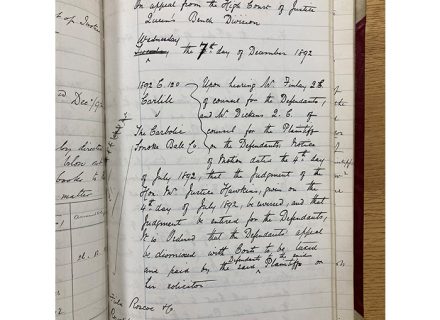 On appeal from the High Court of Justice
Queen's Bench Division
Wednesday
the 7th day of December 1892
1892 C. 120
Upon hearing Mr. Finlay Q.C.
Carlill
of counsel for the Defendants,
and Mr Dickens Q.C. of
The Carbolic
counsel for the Plaintiff
Smoke Ball Co.
on the Defendants Notice
of Motion dated the 4th day
of July 1892, that the judgment of the
Hon. Mr. Justice Hawkins, given on the
4th day of July 1892, be reversed, and that
Judgment be entered for the Defendants,
It is Ordered that the Defendants appeal
be dismissed with Costs to be taxed
and paid by the Defendants to the
said Plaintiff or
her solicitor
Roscoe
matter
books to